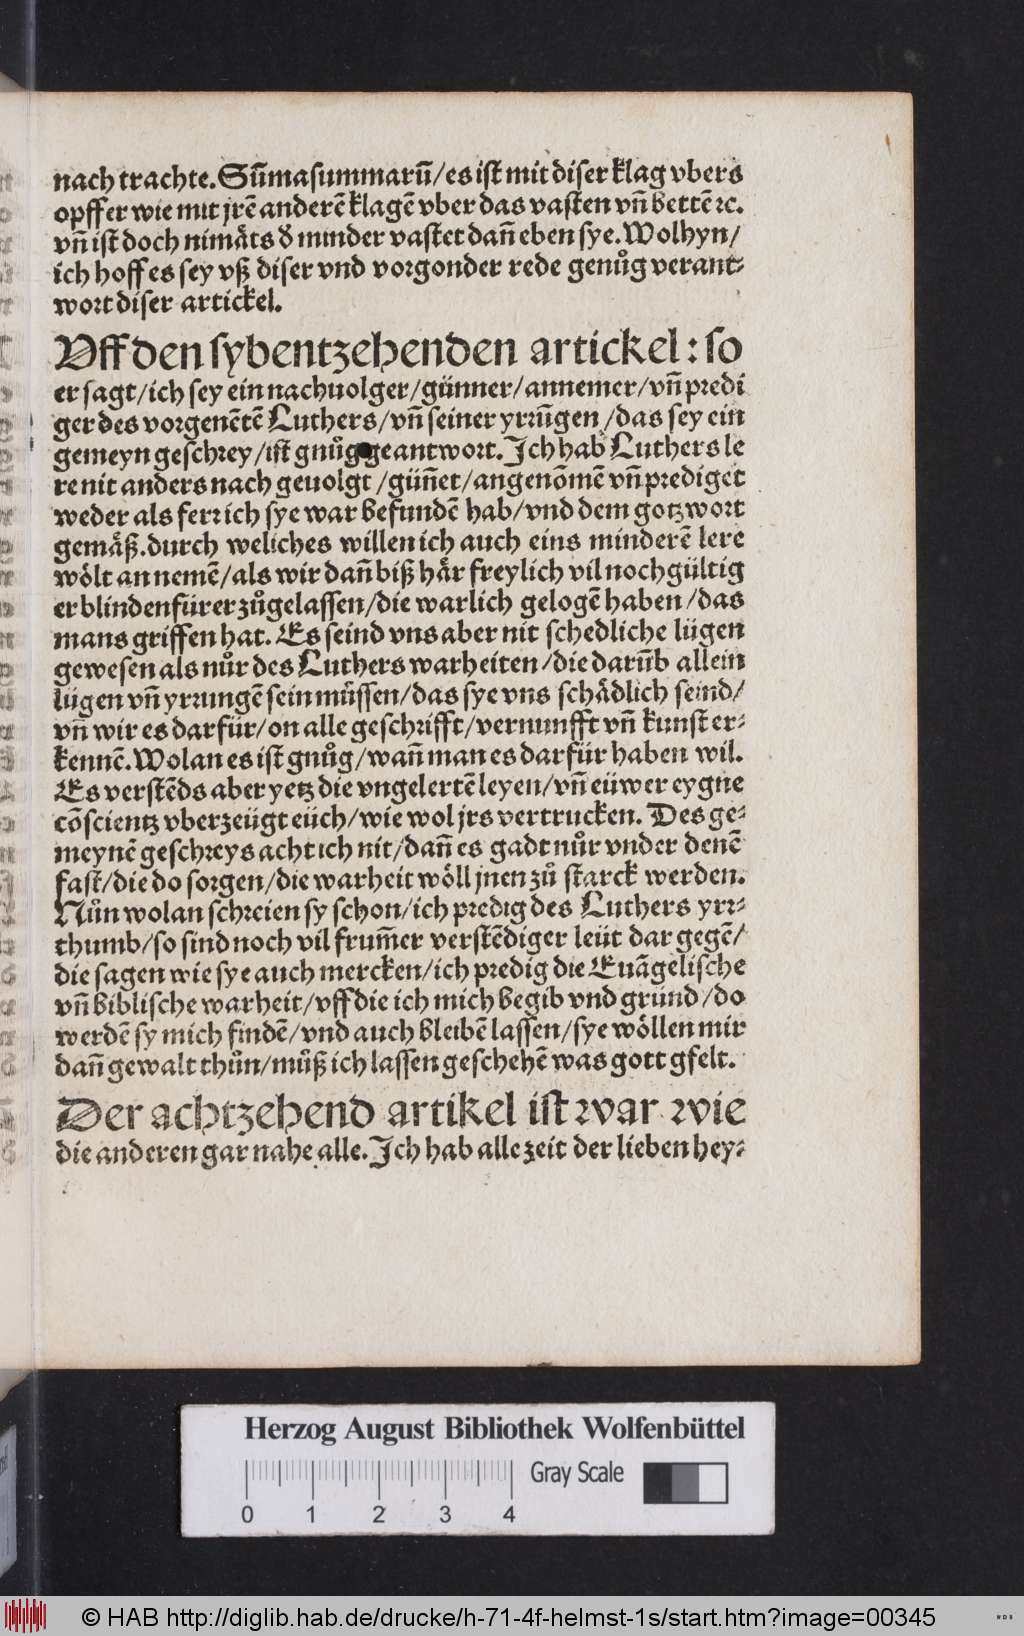 nach trachte. Sum̄a summarū/ es ist mit diser klag vbers
opffer wie mit jrē anderē klagē vber das vasten vn̄ bettē ꝛc.
vn̄ ist doch nimāts d minder vastet dan̄ eben sye. Wolhyn/
ich hoff es sey vß diser vnd vorgonder rede genůg verant⸗
wort diser artickel.
Vff den sybentzehenden artickel: so
er sagt/ ich sey ein nachuolger/ günner/ annemer/ vn̄ predi
ger des vorgenētē Luthers/ vn̄ seiner yrrūgen/ das sey ein
gemeyn geschrey/ ist gnůg geantwort. Ich hab Luthers le
re nit anders nach geuolgt/ gün̄et/ angenōmē vn̄ prediget
weder als ferr ich sye war befundē hab/ vnd dem gotzwort
gemäß. durch weliches willen ich auch eins minderē lere
wölt annemē/ als wir dan̄ biß här freylich vil nochgültig
er blindenfürer zůgelassen/ die warlich gelogē haben/ das
mans griffen hat. Es seind vns aber nit schedliche lügen
gewesen als nůr des Luthers warheiten/ die darūb allein
lügen vn̄ yrrungē sein müssen/ das sye vns schädlich seind/
vn̄ wir es darfür/ on alle geschrifft/ vernunfft vn̄ kunst er⸗
kennē. Wolan es ist gnůg/ wan̄ man es darfür haben wil.
Es verstēds aber yetz die vngelertē leyen/ vn̄ eüwer eygne
cōscientz vberzeügt eüch/ wie wol jrs vertrucken. Des ge⸗
meynē geschreys acht ich nit/ dan̄ es gadt nůr vnder denē
fast/ die do sorgen/ die warheit wöll jnen zů starck werden.
Nůn wolan schreien sy schon/ ich predig des Luthers yrr⸗
thumb/ so sind noch vil frum̄er verstēdiger leüt dar gegē/
die sagen wie sye auch mercken/ ich predig die Euāgelische
vn̄ biblische warheit/ vff die ich mich begib vnd gründ/ do
werdē sy mich findē/ vnd auch bleibē lassen/ sye wöllen mir
dan̄ gewalt thůn/ můß ich lassen geschehē was gott gfelt.
Der achtzehend artikel ist war wie
die anderen gar nahe alle. Ich hab alle zeit der lieben hey⸗
Herzog August Bibliothek Wolfenbüttel
Gray Scale
0 1 2 3 4
© HAB http://diglib.hab.de/drucke/h-71-4f-helmst-1s/start.htm?image=00345